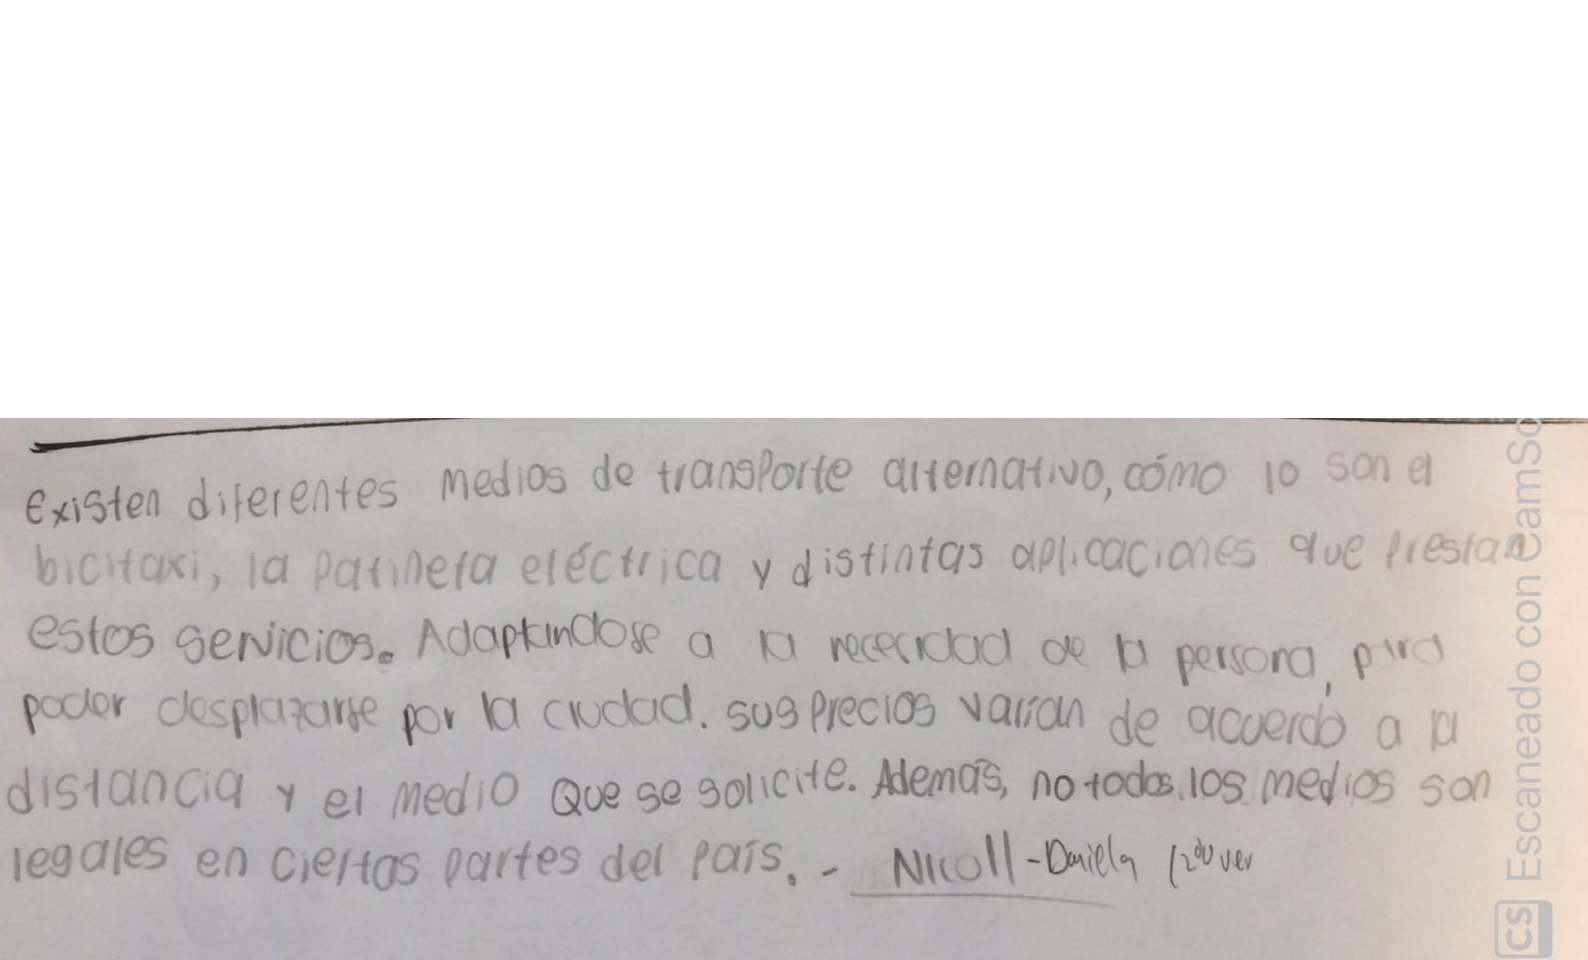 Existen diferentes medios de transporte alternativo, cómo lo son el
bicitaxi, la patineta eléctrica y distintas aplicaciones que prestan
estos servicios. Adaptandose a la necesidad de la persona, para
poder desplazarse por la ciudad. sus precios varian de acuerdo a la
distancia y el medio Que se solicite. Además, no todos los medios son
legales en ciertas partes del país. - Nicoll - Daniela
CS Escaneado con CamSc